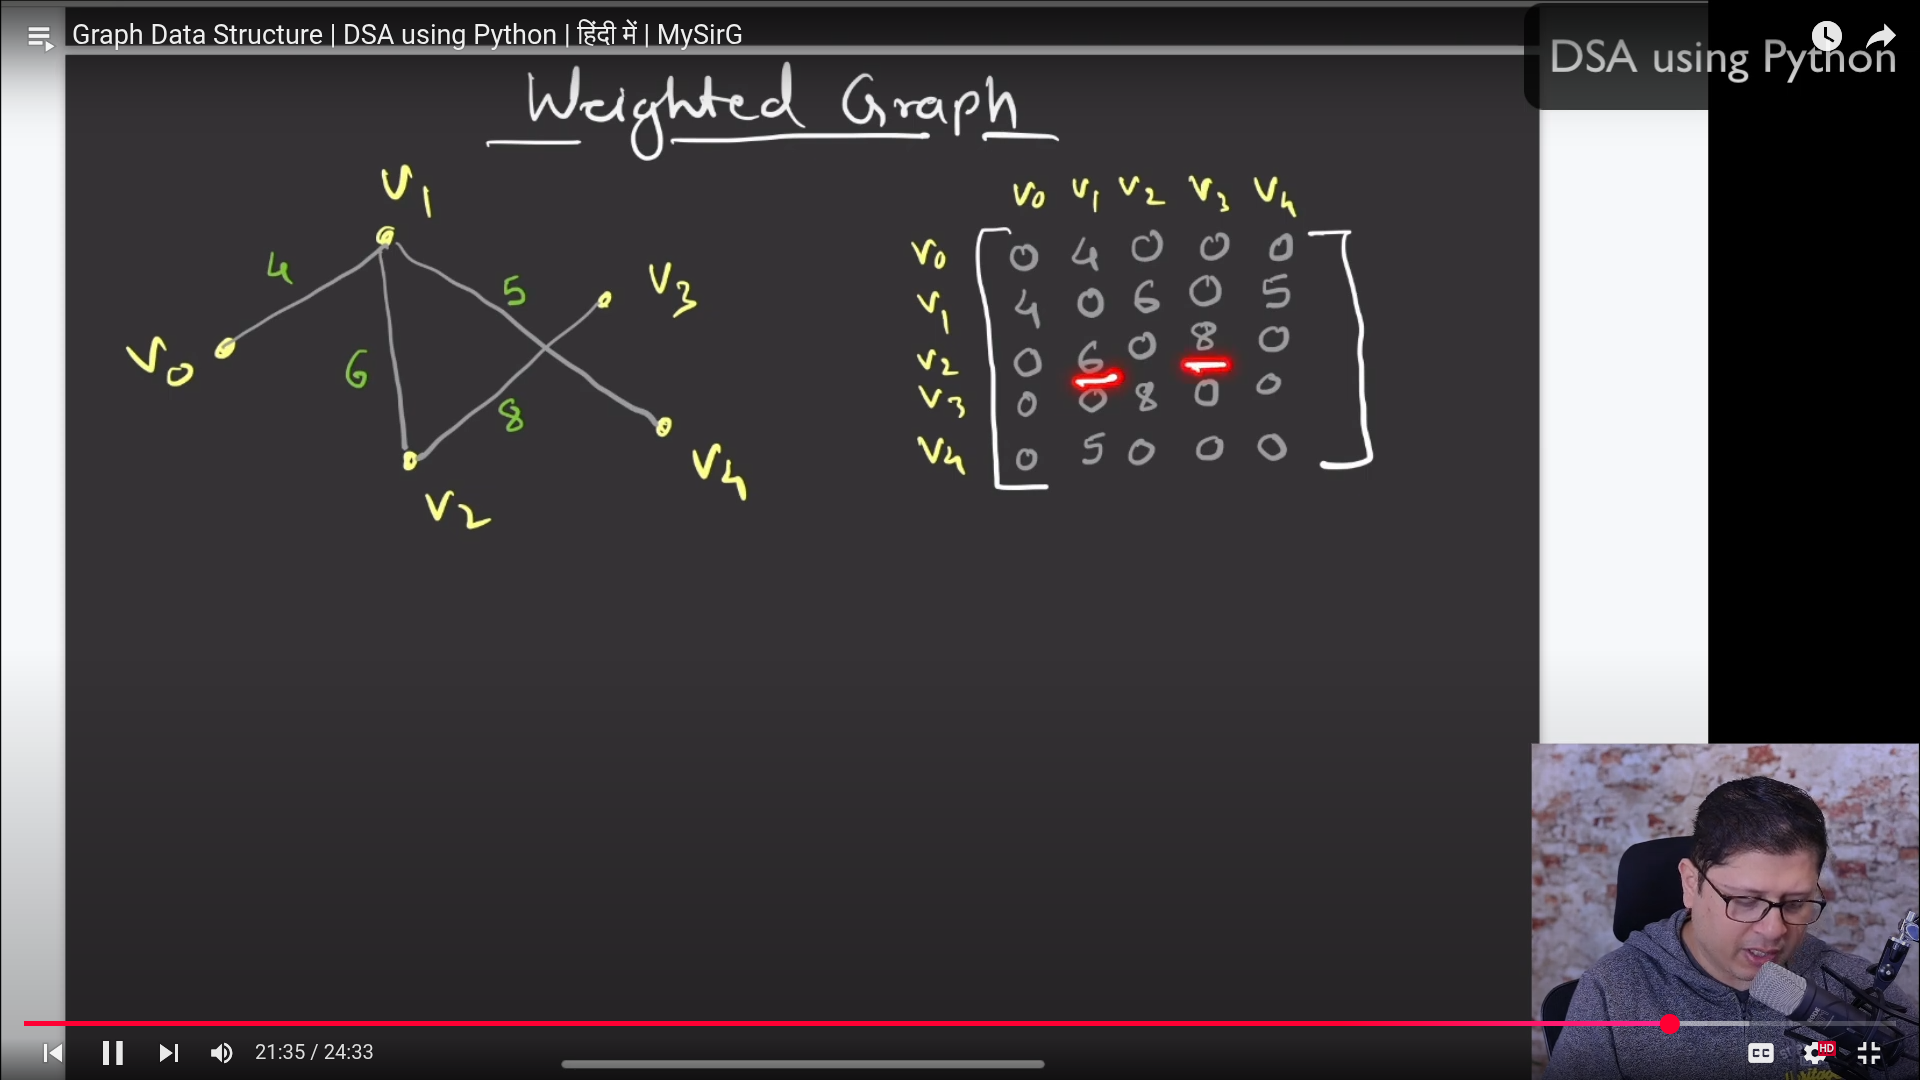 Graph Data Structure | DSA using Python | हिंदी में | MySirG
DSA using Python
Weighted Graph
V1
4
5
V3
V0
6
8
V4
V2
V0 V1 V2 V3 V4
V0 0 4 0 0 0
V1 4 0 6 0 5
V2 0 6 0 8 0
V3 0 0 8 0 0
V4 0 5 0 0 0
21:35 / 24:33
CC
HD